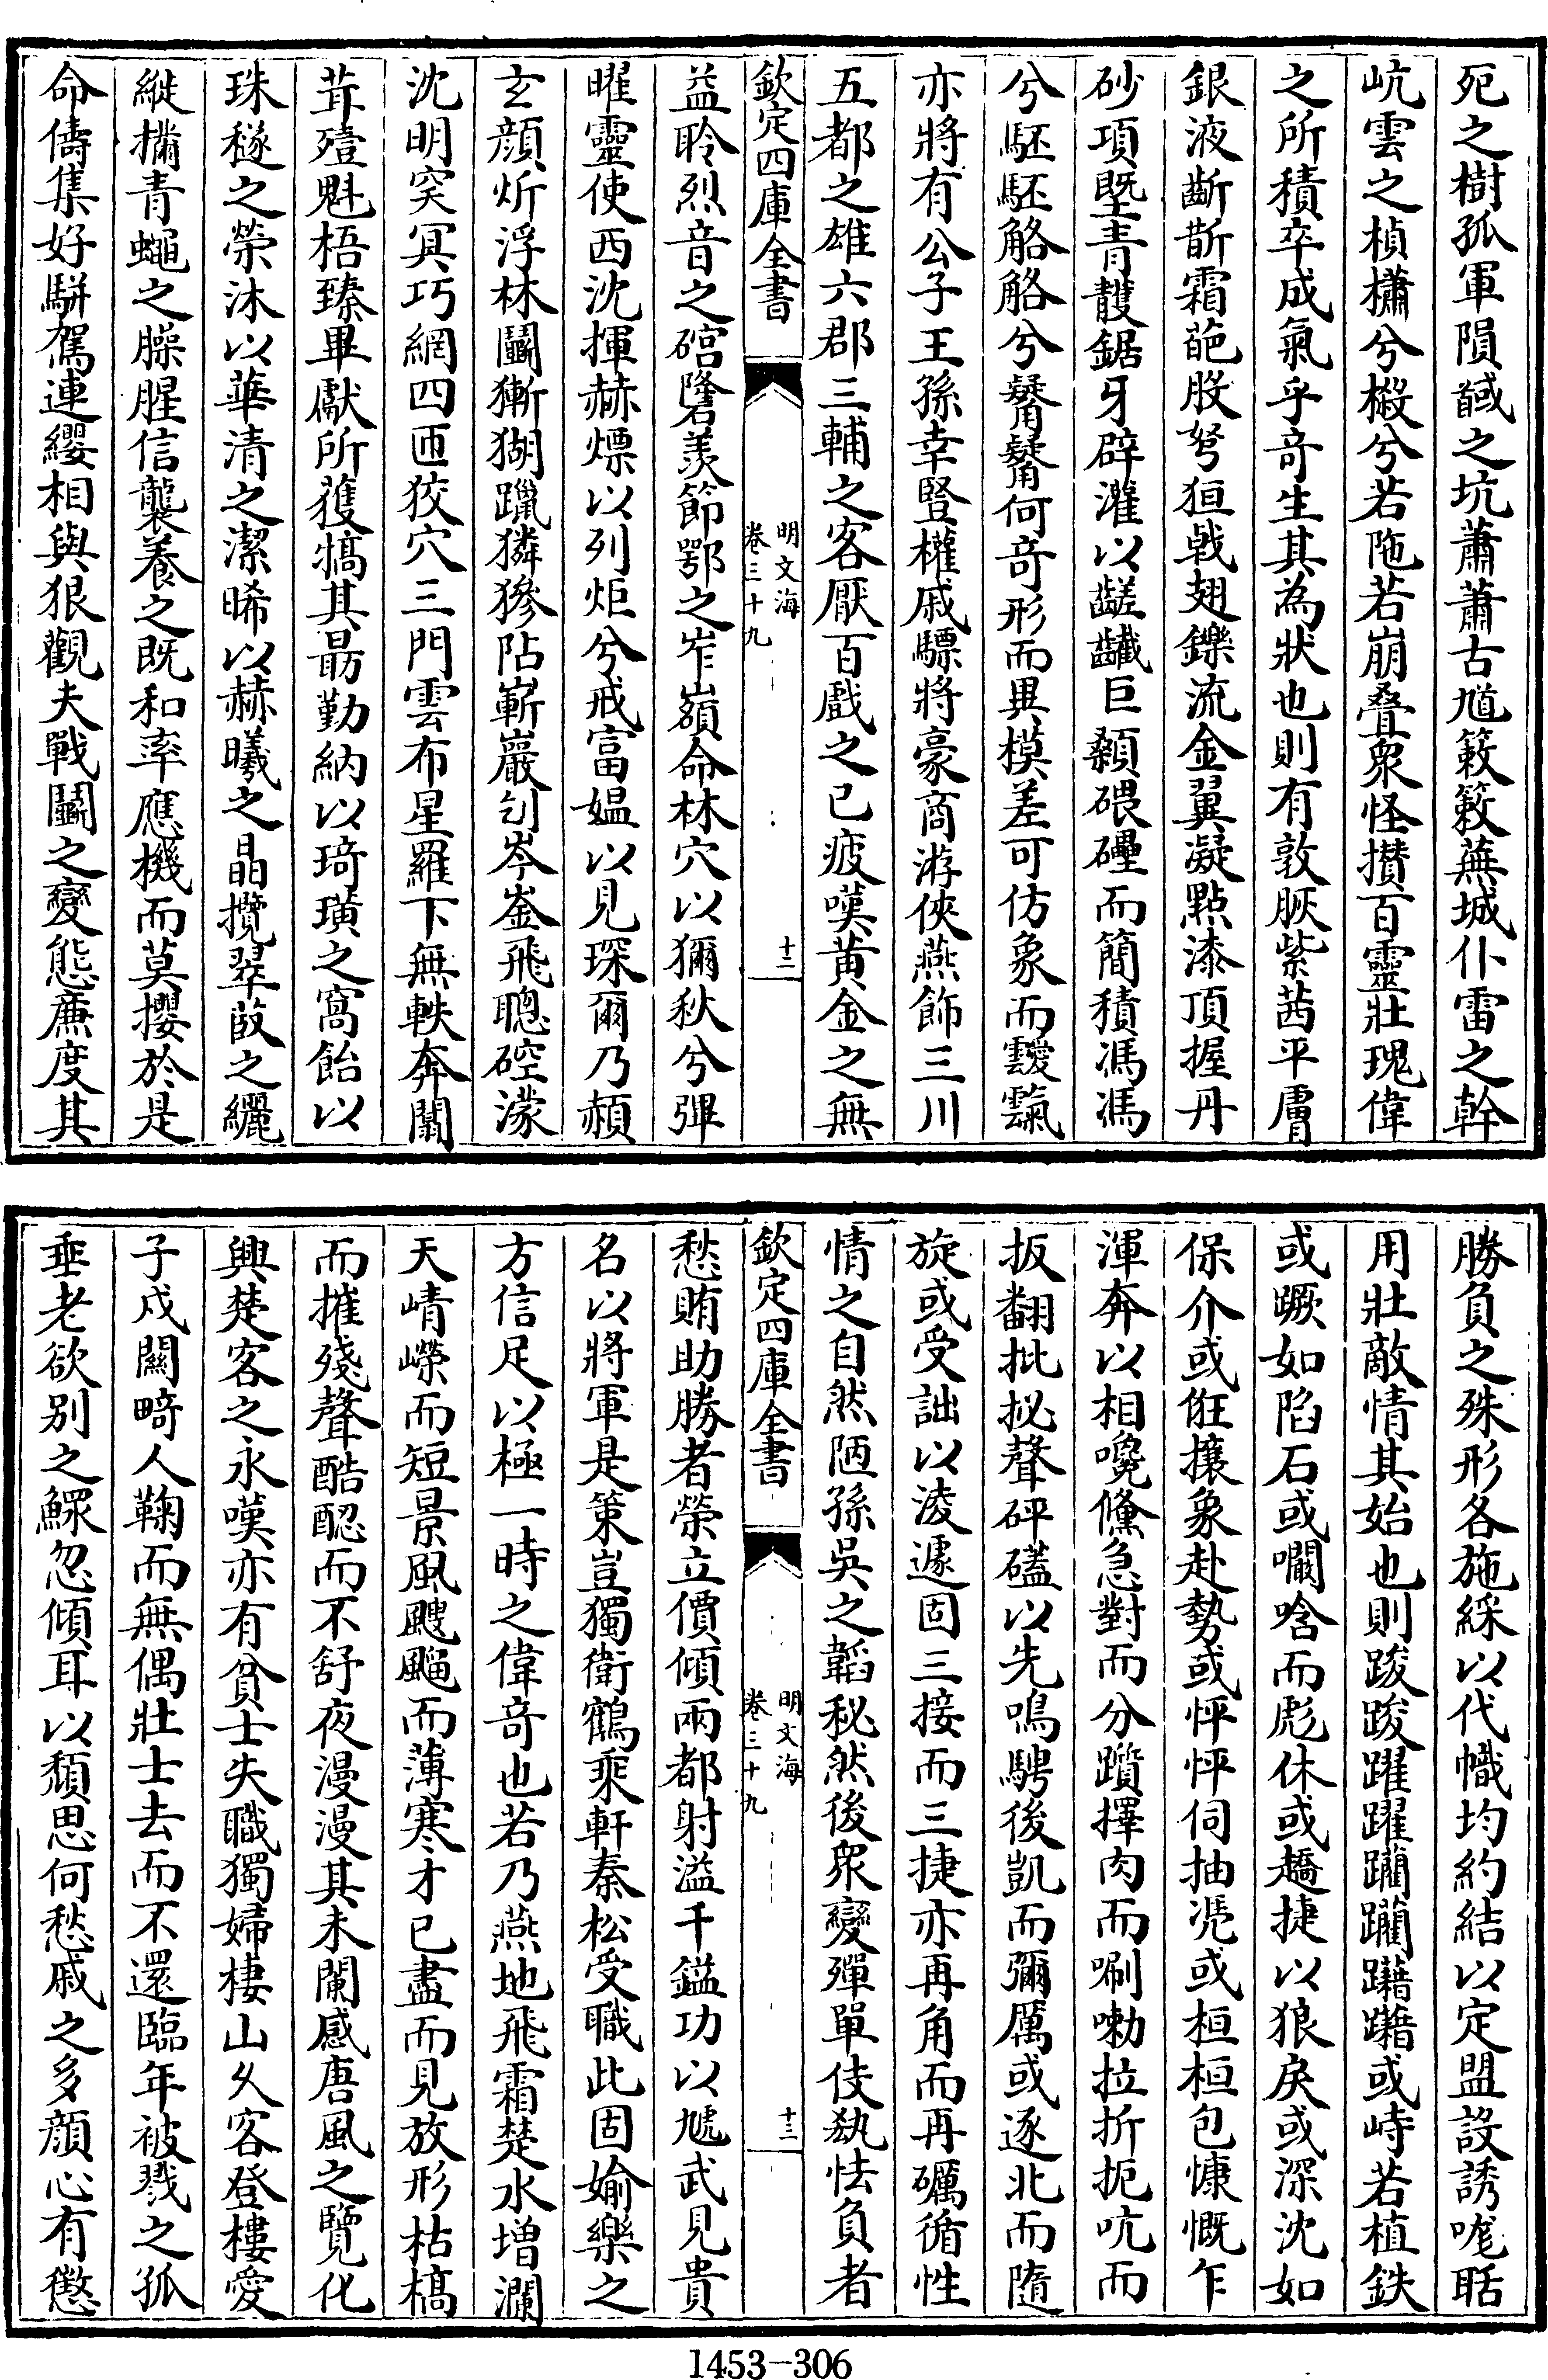 死之樹孤軍隕馘之坑蕭蕭古馗簌簌蕪城仆雷之幹
岏雲之楨橚兮樧兮若陁若崩叠衆怪攅百靈壯瑰偉
之所積卒成氣乎奇生其為狀也則有敦脄紫茜平膚
銀液齗齗霜葩股弩狟戟翅鑠流金翼凝㸃漆頂握丹
砂項墍青頀鋸牙辟灌以齹巨顙碨礧而簡積馮馮
兮駓駓觡觡兮鬠鬠何奇形而異模差可仿象而靉霼
亦將有公子王孫幸豎權戚驃將豪商游俠燕飾三川
五都之雄六郡三輔之客厭百戲之已疲嘆黃金之無
欽定四庫全書
明文海
卷三十九
十二
益聆烈音之硿㟖羨節鄂之岝嶺命林穴以獮秋兮彈
曜靈使西沈揮赫熛以列炬兮戒富媪以見琛爾乃頳
玄顔炘浮林鬬獑猢躐獜獲阽嶄巖刉岑崟飛聰硿濛
沈明窔冥巧網四匝狡穴三門雲布星羅下無軼奔闠
茸殪魁梧臻畢獻所獲犒其最勤納以琦璜之窩飴以
珠稼之榮沐以華清之潔晞以赫曦之晶攬翠菣之纚
縰擒青蠅之臊腥信襲養之既和率應機而莫攖於是
命儔集好駢駕連纓相與狠觀夫戰鬬之變態廉度其
勝負之殊形各施綵以代幟均約結以定盟設誘嚨聒
用壯敵情其始也則踆踆躍躍躪躪躤躤或峙若植鉄
或蹶如陷石或㘎唅而彪休或趫捷以狼戾或深沈如
保介或俇攘象赴勢或怦怦伺抽㷟或桓桓包慷慨乍
渾奔以相嚵儵急對而分躓擇肉而唰嘞拉折扼吭而
扳翻批㧙聲砰礚以先鳴騁後凱而彌厲或逐北而隨
旋或受詘以淩遽固三接而三捷亦再角而再礪循性
情之自然陋孫吳之韜秘然後衆變殫單伎埶怯負者
欽定四庫全書
明文海
卷三十九
十三
愁賄助勝者榮立價傾兩都射溢千鎰功以虓武見貴
名以將軍是策豈獨衛鶴乘軒秦松受職此固媮樂之
方信足以極一時之偉奇也若乃燕地飛霜楚水增瀾
天崝嶸而短景風颼飀而薄寒才已盡而見放形枯槁
而摧殘聲酷䣼而不舒夜漫漫其未闌感唐風之覽化
興楚客之永嘆亦有貧士失職獨婦棲山久客登樓愛
子戍關畸人鞠而無偶壯士去而不還臨年被戮之孤
垂老欲別之鰥忽傾耳以頽思何愁戚之多顔心有懲
1453-306